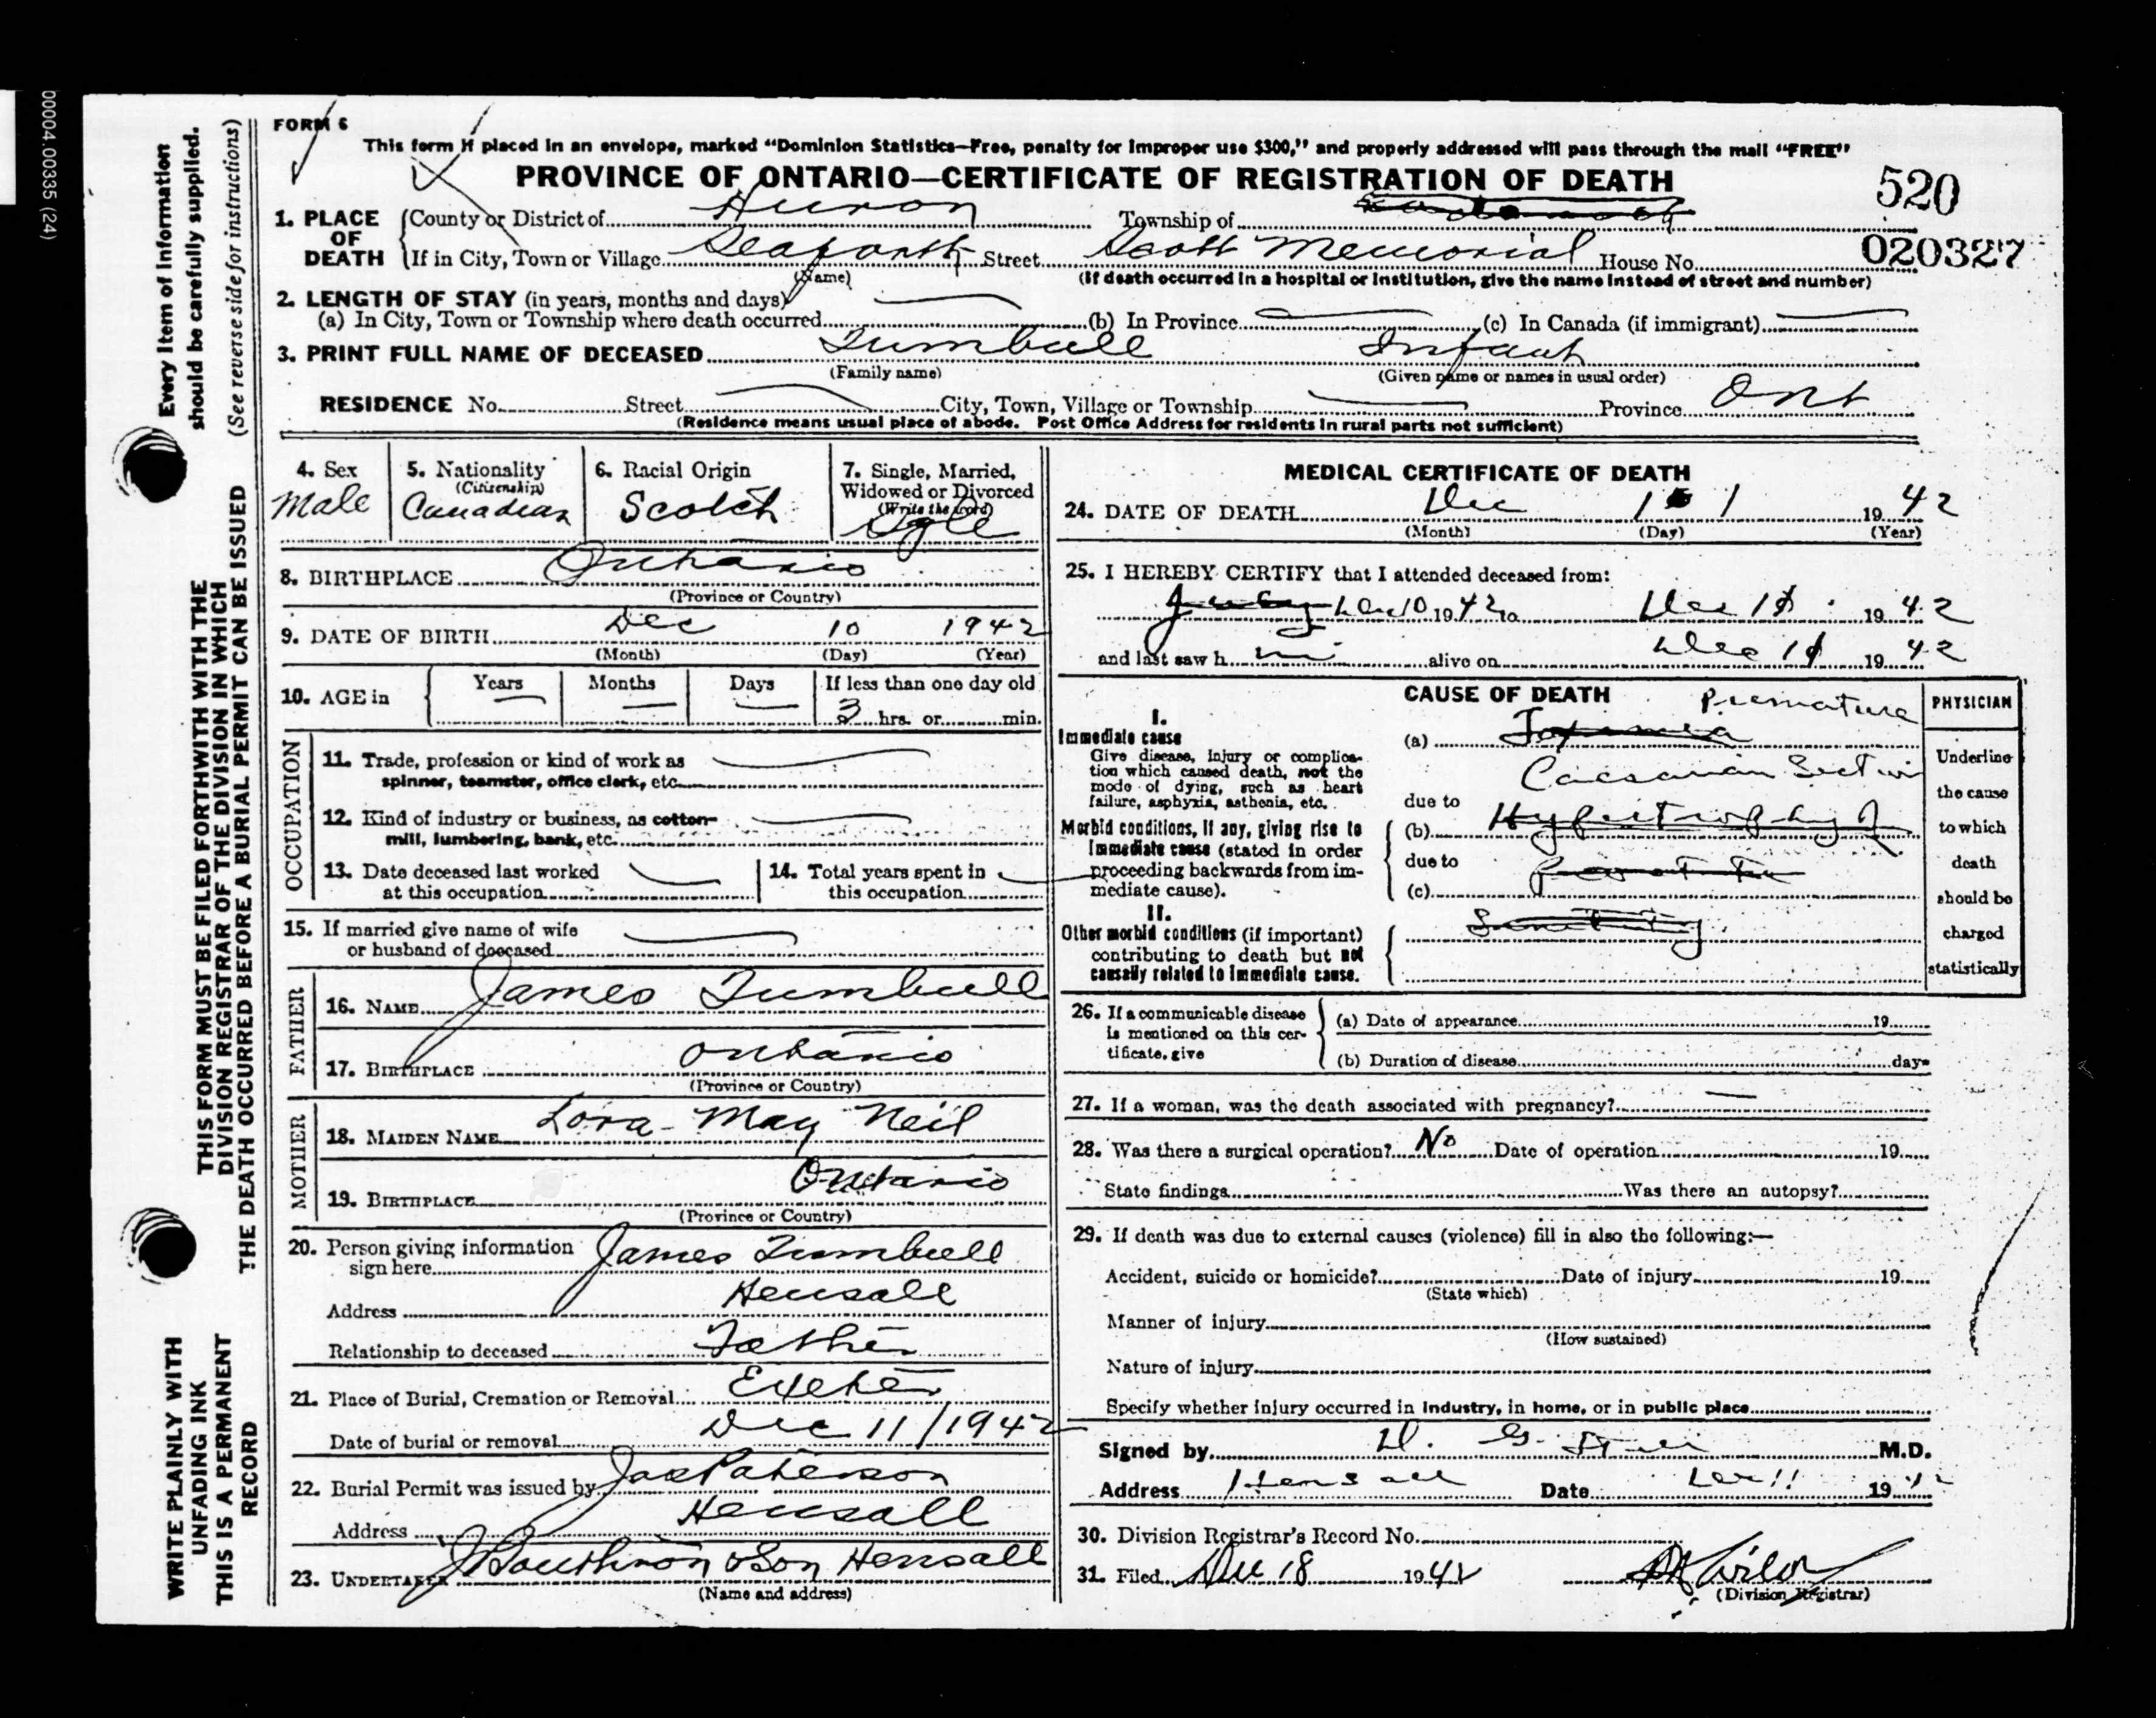 00004.00335 (24)
Every Item of Information
should be carefully supplied.
(See reverse side for instructions)
THIS FORM MUST BE FILED FORTHWITH WITH THE
DIVISION REGISTRAR OF THE DIVISION IN WHICH
THE DEATH OCCURRED BEFORE A BURIAL PERMIT CAN BE ISSUED
WRITE PLAINLY WITH
UNFADING INK
THIS IS A PERMANENT
RECORD
FORM 6
This form if placed in an envelope, marked "Dominion Statistics—Free, penalty for improper use $300," and properly addressed will pass through the mail "FREE"
PROVINCE OF ONTARIO—CERTIFICATE OF REGISTRATION OF DEATH
520
020327
1. PLACE OF DEATH County or District of Huron Township of
If in City, Town or Village Seaforth Street Scott Memorial House No.
(Name) (If death occurred in a hospital or institution, give the name instead of street and number)
2. LENGTH OF STAY (in years, months and days)
(a) In City, Town or Township where death occurred (b) In Province (c) In Canada (if immigrant)
3. PRINT FULL NAME OF DECEASED Turnbull Infant
(Family name) (Given name or names in usual order)
RESIDENCE No. Street City, Town, Village or Township Province Ont
(Residence means usual place of abode. Post Office Address for residents in rural parts not sufficient)
4. Sex Male
5. Nationality (Citizenship) Canadian
6. Racial Origin Scotch
7. Single, Married, Widowed or Divorced (Write the word) Sgle
8. BIRTHPLACE Ontario
(Province or Country)
9. DATE OF BIRTH Dec 10 1942
(Month) (Day) (Year)
10. AGE in Years Months Days If less than one day old
3 hrs. or min.
OCCUPATION
11. Trade, profession or kind of work as
spinner, teamster, office clerk, etc.
12. Kind of industry or business, as cotton-
mill, lumbering, bank, etc.
13. Date deceased last worked
at this occupation
14. Total years spent in
this occupation
15. If married give name of wife
or husband of deceased
FATHER
16. NAME James Turnbull
17. BIRTHPLACE Ontario
(Province or Country)
MOTHER
18. MAIDEN NAME Lora May Neil
19. BIRTHPLACE Ontario
(Province or Country)
20. Person giving information
sign here James Turnbull
Address Hensall
Relationship to deceased Father
21. Place of Burial, Cremation or Removal Exeter
Date of burial or removal Dec 11/1942
22. Burial Permit was issued by Jas Paterson
Address Hensall
23. UNDERTAKER Bonthron & Son Hensall
(Name and address)
MEDICAL CERTIFICATE OF DEATH
24. DATE OF DEATH Dec 11 1942
(Month) (Day) (Year)
25. I HEREBY CERTIFY that I attended deceased from:
Dec 10 1942 to Dec 11 1942
and last saw h im alive on Dec 11 1942
CAUSE OF DEATH
I.
Immediate cause
Give disease, injury or complica-
tion which caused death, not the
mode of dying, such as heart
failure, asphyxia, asthenia, etc.
Premature
(a) Toxemia
Caesarian Section
Morbid conditions, if any, giving rise to
Immediate cause (stated in order
proceeding backwards from im-
mediate cause).
due to
(b) Hypertrophy of
due to
(c)
II.
Other morbid conditions (if important)
contributing to death but not
causally related to immediate cause.
PHYSICIAN
Underline
the cause
to which
death
should be
charged
statistically
26. If a communicable disease
is mentioned on this cer-
tificate, give
(a) Date of appearance 19
(b) Duration of disease days
27. If a woman, was the death associated with pregnancy?
28. Was there a surgical operation? No Date of operation 19
State findings Was there an autopsy?
29. If death was due to external causes (violence) fill in also the following:—
Accident, suicide or homicide? Date of injury 19
(State which)
Manner of injury
(How sustained)
Nature of injury
Specify whether injury occurred in industry, in home, or in public place
Signed by D. G. M.D.
Address Hensall Date Dec 11 1942
30. Division Registrar's Record No.
31. Filed Dec 18 1942
(Division Registrar)